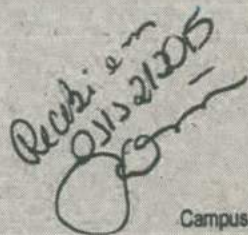 Recebi em
03/12/2015
Campus